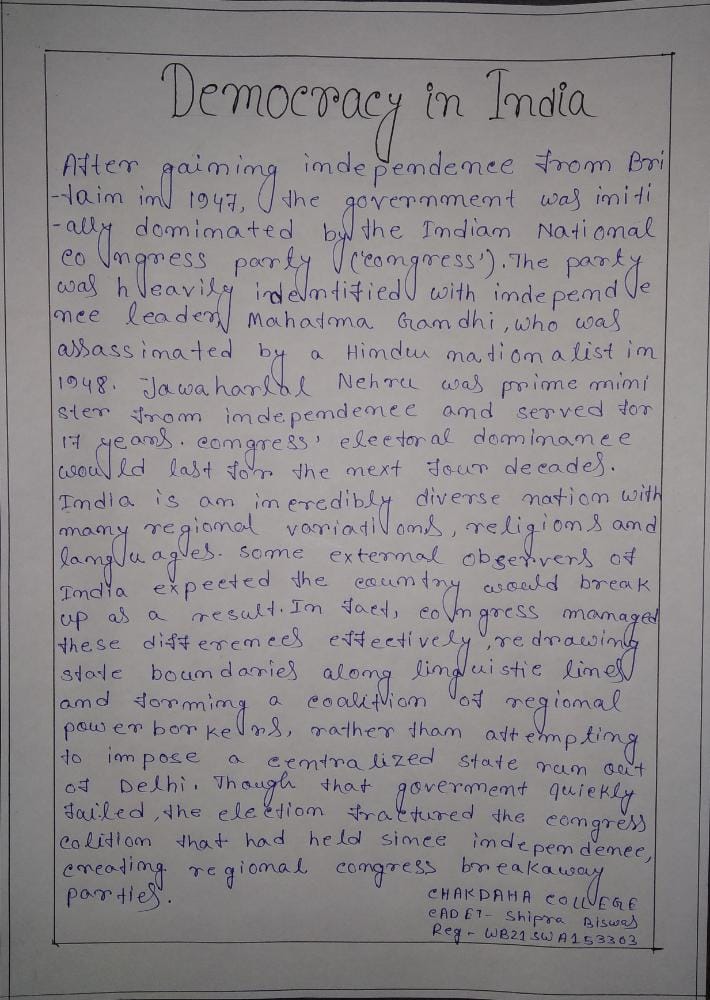 Democracy in India
After gaining independence from Bri
-tain in 1947, the government was initi
-ally dominated by the Indian National
congress party ('congress'). The party
was heavily indentified with independe
nce leader Mahatma Gandhi, who was
assassinated by a Hindu nationalist in
1948. Jawaharlal Nehru was prime mini
ster from independence and served for
17 years. congress' electoral dominance
would last for the next four decades.
India is an incredibly diverse nation with
many regional variations, religions and
languages. some external observers of
India expected the country would break
up as a result. In fact, congress managed
these differences effectively, redrawing
state boundaries along linguistic lines
and forming a coalition of regional
power borkers, rather than attempting
to impose a centralized state run out
of Delhi. Though that goverment quickly
failed, the election fractured the congress
colition that had held since independence,
creating regional congress breakaway
parties.
CHAKDAHA COLLEGE
CADET- Shipra Biswas
Reg - WB21SWA153303